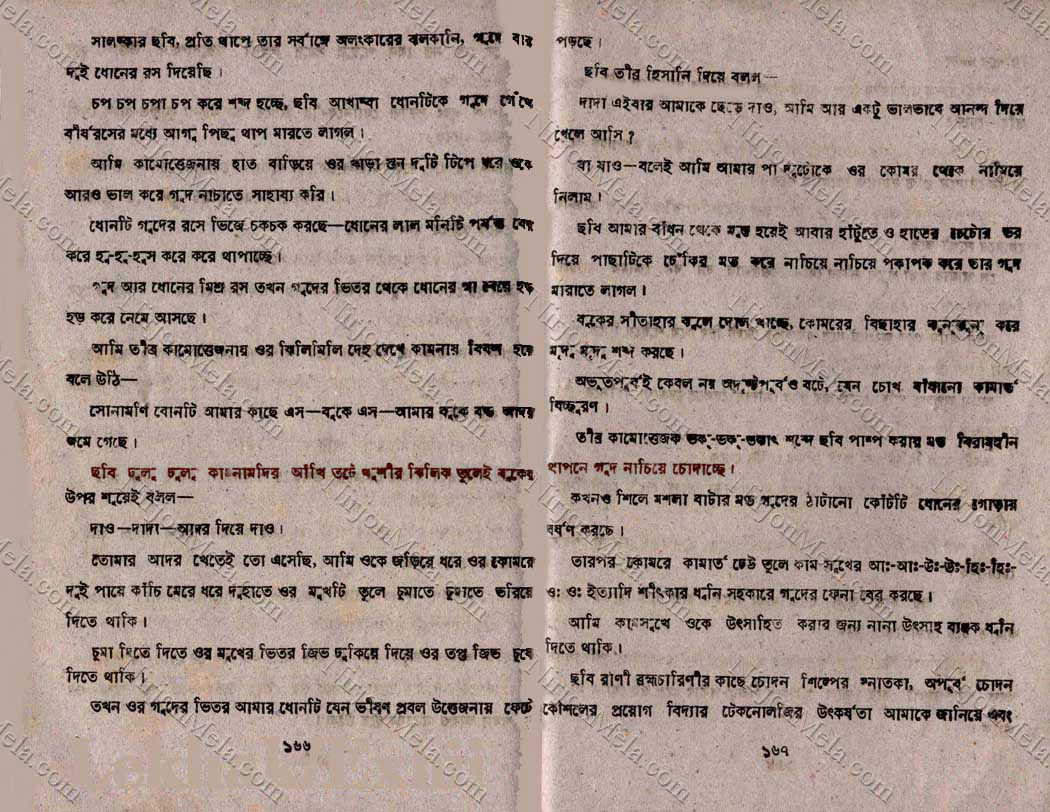 সালঙ্কার ছবি, প্রতি থাপে তার সর্বাঙ্গে অলংকারের ঝলকানি, গুদে বার
দুই ধোনের রস দিয়েছি।
চপ চপ চপা চপ করে শব্দ হচ্ছে, ছবি আখাম্বা ধোনটিকে গুদে গেঁথে
বীর্যরসের মধ্যে আগু পিছু থাপ মারতে লাগল।
আমি কামোত্তেজনায় হাত বাড়িয়ে ওর খাড়া স্তন দুটি টিপে ধরে ওকে
আরও ভাল করে গুদ নাচাতে সাহায্য করি।
ধোনটি গুদের রসে ভিজে চকচক করছে—ধোনের লাল মনিটি পর্যন্ত বের
করে হু-হু-হুস করে করে থাপাচ্ছে।
গুদ আর ধোনের মিশ্র রস তখন গুদের ভিতর থেকে ধোনের গা বেয়ে হড়
হড় করে নেমে আসছে।
আমি তীব্র কামোত্তেজনায় ওর ঝিলিমিলি দেহ দেখে কামনায় বিবশ হয়ে
বলে উঠি—
সোনামণি বোনটি আমার কাছে এস—বুকে এস—আমার বুকে বড্ড আদর
জমে গেছে।
ছবি ঢুলু ঢুলু কামনামদির আঁখি তটে খুশীর ঝিলিক তুলেই বুকের
উপর শুয়েই বলল—
দাও—দাদা—আদর দিয়ে দাও।
তোমার আদর খেতেই তো এসেছি, আমি ওকে জড়িয়ে ধরে ওর কোমরে
দুই পায়ে কাঁচি মেরে ধরে দুহাতে ওর মুখটি তুলে চুমাতে চুমাতে ভরিয়ে
দিতে থাকি।
চুমা দিতে দিতে ওর মুখের ভিতর জিভ ঢুকিয়ে দিয়ে ওর তপ্ত জিভ চুষে
দিতে থাকি।
তখন ওর গুদের ভিতর আমার ধোনটি যেন ভীষণ প্রবল উত্তেজনায় ফেটে
১৬৬
পড়ছে।
ছবি তীব্র হিসানি দিয়ে বলল—
দাদা এইবার আমাকে ছেড়ে দাও, আমি আর একটু ভালভাবে আনন্দ দিয়ে
খেলে আসি?
যা যাও—বলেই আমি আমার পা দুটোকে ওর কোমর থেকে নামিয়ে
নিলাম।
ছবি আমার বাঁধন থেকে মুক্ত হয়েই আবার হাঁটুতে ও হাতের চেটোর ভর
দিয়ে পাছাটিকে ঢেঁকির মত করে নাচিয়ে নাচিয়ে পকাপক করে তার গুদ
মারাতে লাগল।
বুকের সীতাহার ঝুলে দোল খাচ্ছে, কোমরের বিছাহার ঝুনঝুন করে
মৃদু মৃদু শব্দ করছে।
অভূতপূর্বই কেবল নয় অদৃষ্টপূর্বও বটে, যেন চোখ ধাঁধানো কামার্ত
বিচ্ছুরণ।
তীব্র কামোত্তেজক ভক্-ভক্-ভচাৎ শব্দে ছবি পাম্প করার মত বিরামহীন
থাপনে গুদ নাচিয়ে চোদাচ্ছে।
কখনও শিলে মশলা বাটার মত গুদের ঠাটানো কোঁটটি ধোনের গোড়ায়
ঘর্ষণ করছে।
তারপর কোমরে কামার্ত ঢেউ তুলে কাম সুখের আঃ-আঃ-উঃ-উঃ-হিঃ-হিঃ-
ওঃ ওঃ ইত্যাদি শীৎকার ধ্বনি সহকারে গুদের ফেনা বের করছে।
আমি কামসুখে ওকে উৎসাহিত করার জন্য নানা উৎসাহ ব্যঞ্জক ধ্বনি
দিতে থাকি।
ছবি রাণী ব্রহ্মচারিণীর কাছে চোদন শিল্পের স্নাতকা, অপূর্ব চোদন
কৌশলের প্রয়োগ বিদ্যার টেকনোলজির উৎকর্ষতা আমাকে জানিয়ে এবং
১৬৭